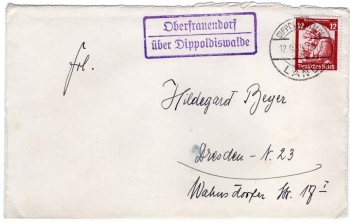 Oberfrauendorf
über Dippoldiswalde
12 12
Deutsches Reich
LAND
Frl.
Hildegard Beyer
Dresden - N. 23
Wahnsdorfer Str. 17 I